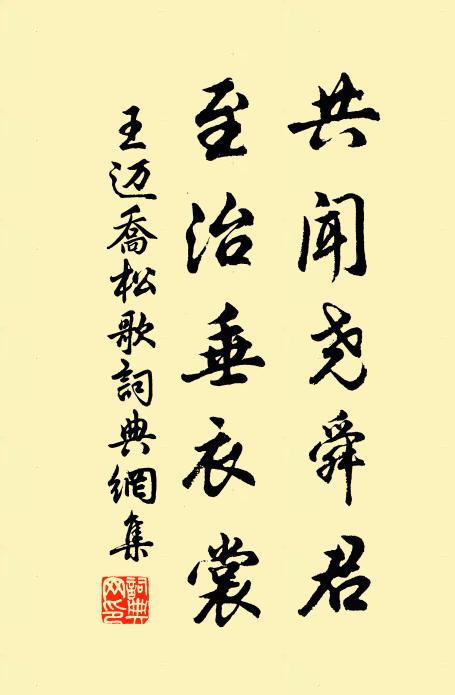 共闻尧舜君
至治垂衣裳
王迈乔松歌詞典網集
詞典网印